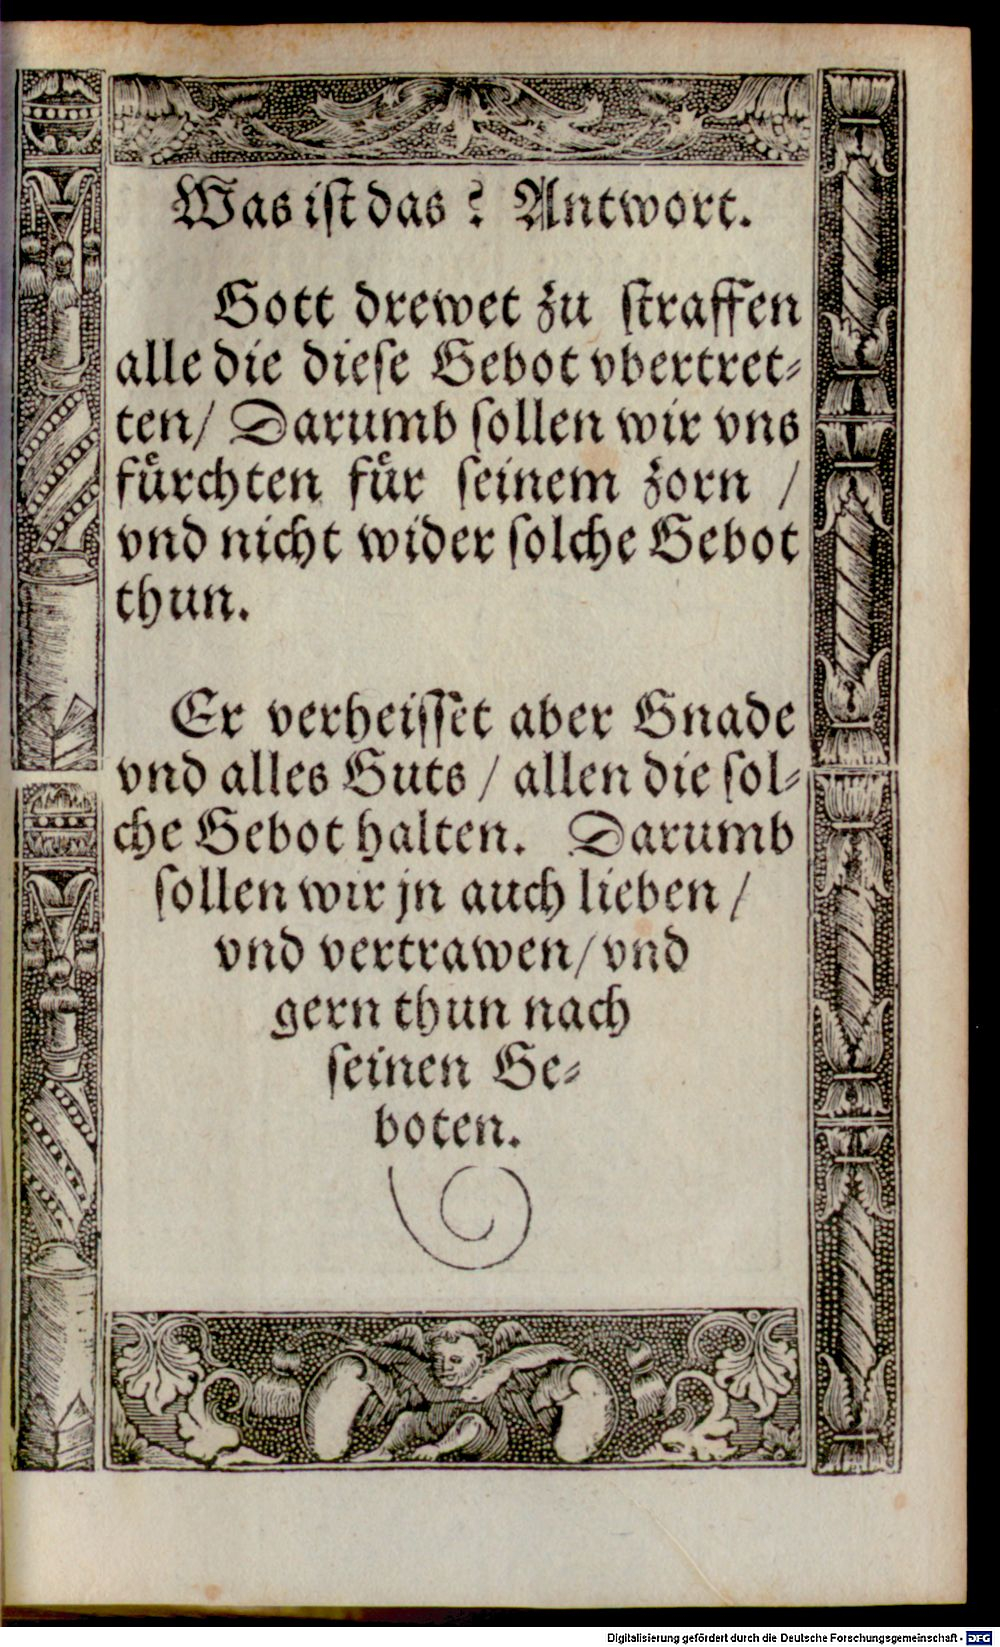 Was ist das? Antwort.
Gott drewet zu straffen
alle die diese Gebot vbertret⸗
ten/ Darumb sollen wir vns
fuͤrchten fuͤr seinem zorn /
vnd nicht wider solche Gebot
thun.
Er verheisset aber Gnade
vnd alles Guts / allen die sol⸗
che Gebot halten. Darumb
sollen wir jn auch lieben /
vnd vertrawen/ vnd
gern thun nach
seinen Ge⸗
boten.
Digitalisierung gefördert durch die Deutsche Forschungsgemeinschaft - DFG